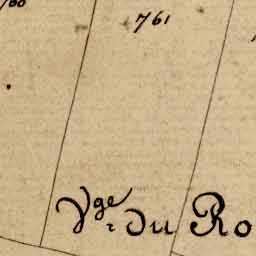 761
Vge. du Ro